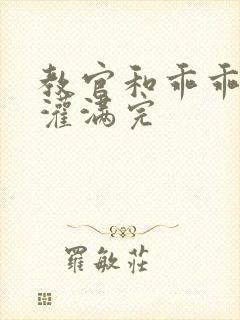 教官和乖乖
灌满完
羅敏莊